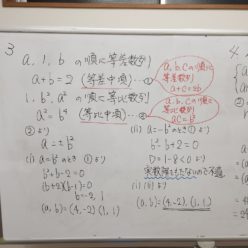 3
a, 1, b の順に等差数列
a+b=2 (等差中項)…①
a, b, c の順に
等差数列
a+c=2b
1, b², a² の順に等比数列
a²=b⁴ (等比中項)…②
a, b, c の順に
等比数列
ac=b²
②より
a=±b²
(i) a=b²のとき ①より
b²+b-2=0
(b+2)(b-1)=0
b=-2, 1
(a,b)=(4,-2), (1,1)
(ii) a=-b²のとき ①より
b²-b+2=0
D=1-8<0 より
実数解をもたないので不適
(i)(ii)より
(a,b)=(4,-2), (1,1)
4.